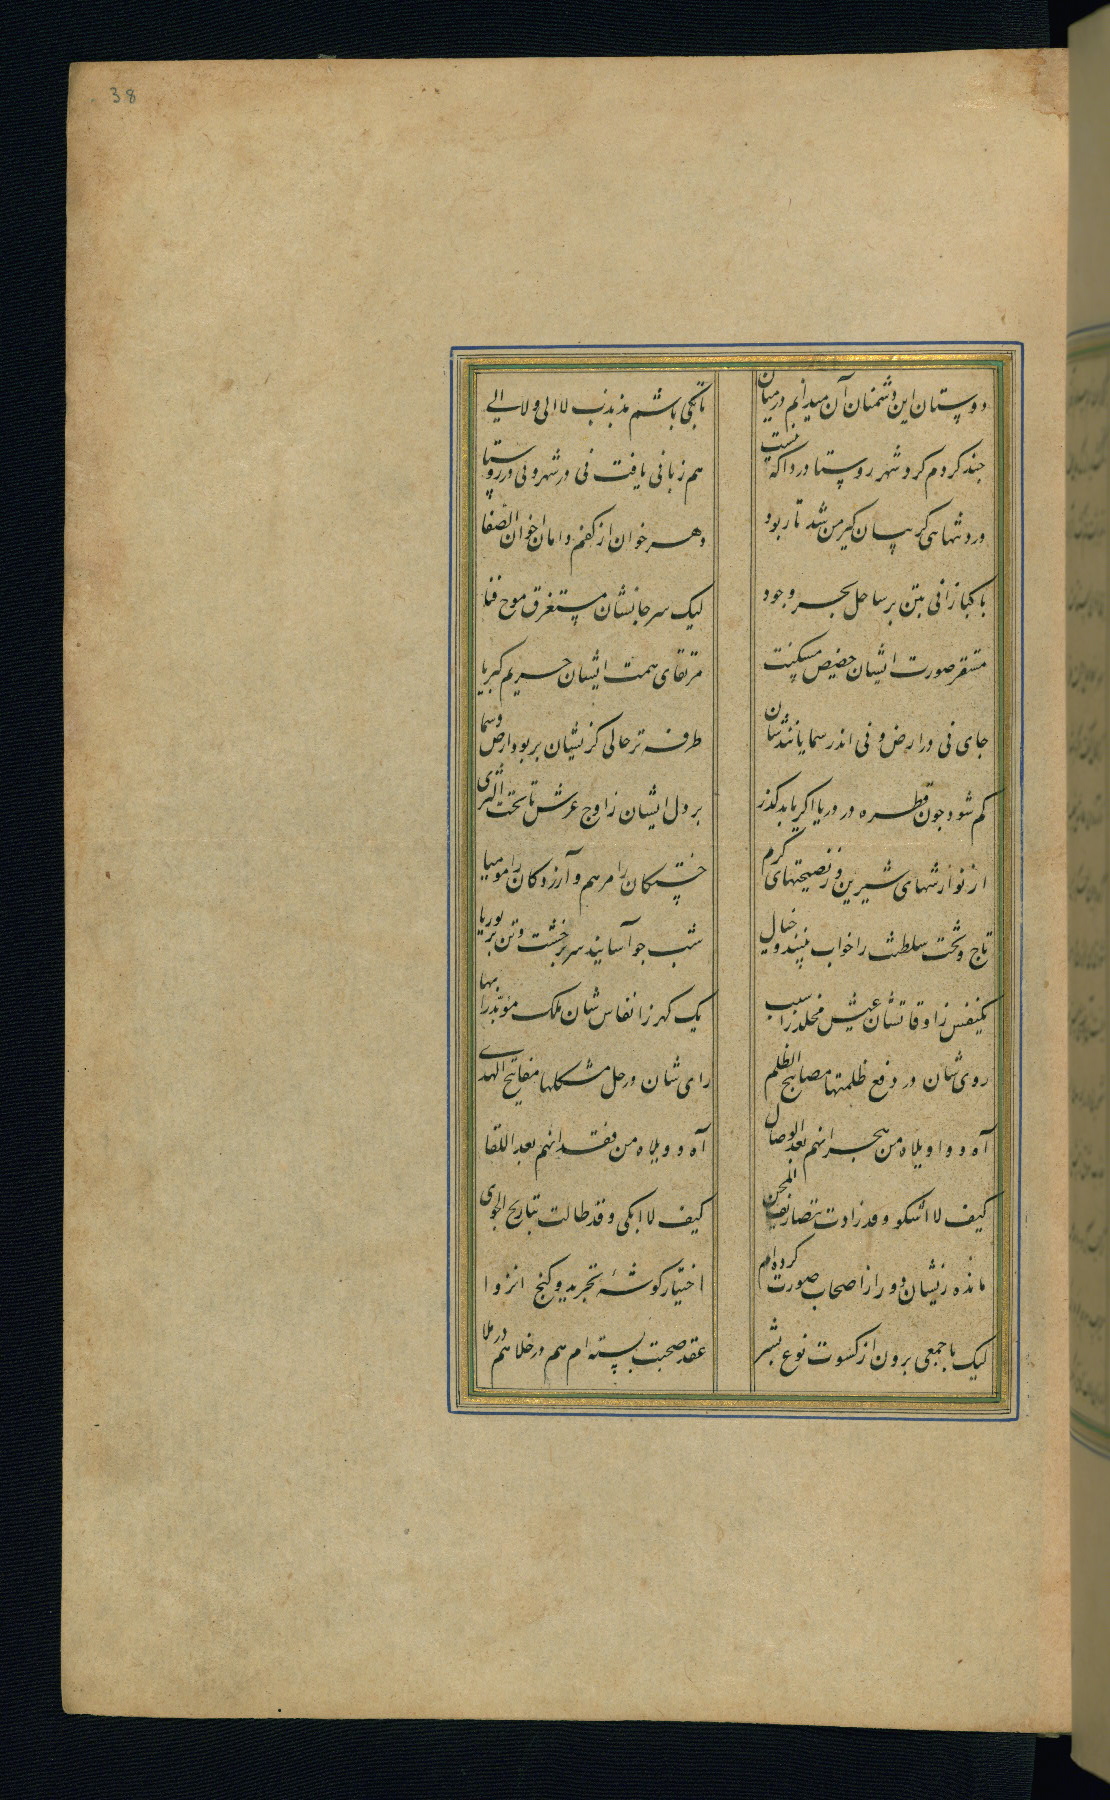 38
دوستان این دشمنان آن میدانم درمیان
تا بکی باشم مذبذب لا الی ولا الی
چند کردم کرد شهر روستا درداکه نیست
هم زبانی یافت نی در شهر ونی در روستا
کریبان کیر من شد تا ربود
دهر خوان از کفم دامان اخوان الصفا
پاکبازانی بتن بر ساحل بحر وجود
لیک سر جانشان مستغرق موج فنا
مستقر صورت ایشان حضیض مسکنت
مرتقای همت ایشان حریم کبریا
جای نی در ارض و نی اندر سما یابند شان
طرفه تر حالی کزیشان بر بود ارض و سما
کم شود چون قطره در دریا اکر یابد کذر
بر دل ایشان ز اوج عرش تا تحت الثری
از نوازشهای شیرین وز نصیحتهای کرم
خستکان را مرهم و آزردکان را مومیا
تاج وتخت سلطنت را خواب بینند و خیال
شب چو آسایند سر بر خشت و تن بر بوریا
یکنفس ز اوقاتشان عیش مخلد را سبب
یک کهر ز انفاس شان ملک مؤبد را بها
روی شان در دفع ظلمتها مصابیح الظلم
رای شان در حل مشکلها مفاتیح الهدی
آه و واویلاه من هجرانهم بعد الوصال
آه و ویلاه من فقدانهم بعد اللقا
کیف لا اشکو وقد زادت تصاریف المحن
کیف لا ابکی وقد طالت تباریح الجوی
مانده زیشان دور از اصحاب صورت کرده ام
اختیار کوشهٔ تجرید و کنج انزوا
لیک با جمعی برون از کسوت نوع بشر
عقد صحبت بسته ام هم در خلا هم در ملا